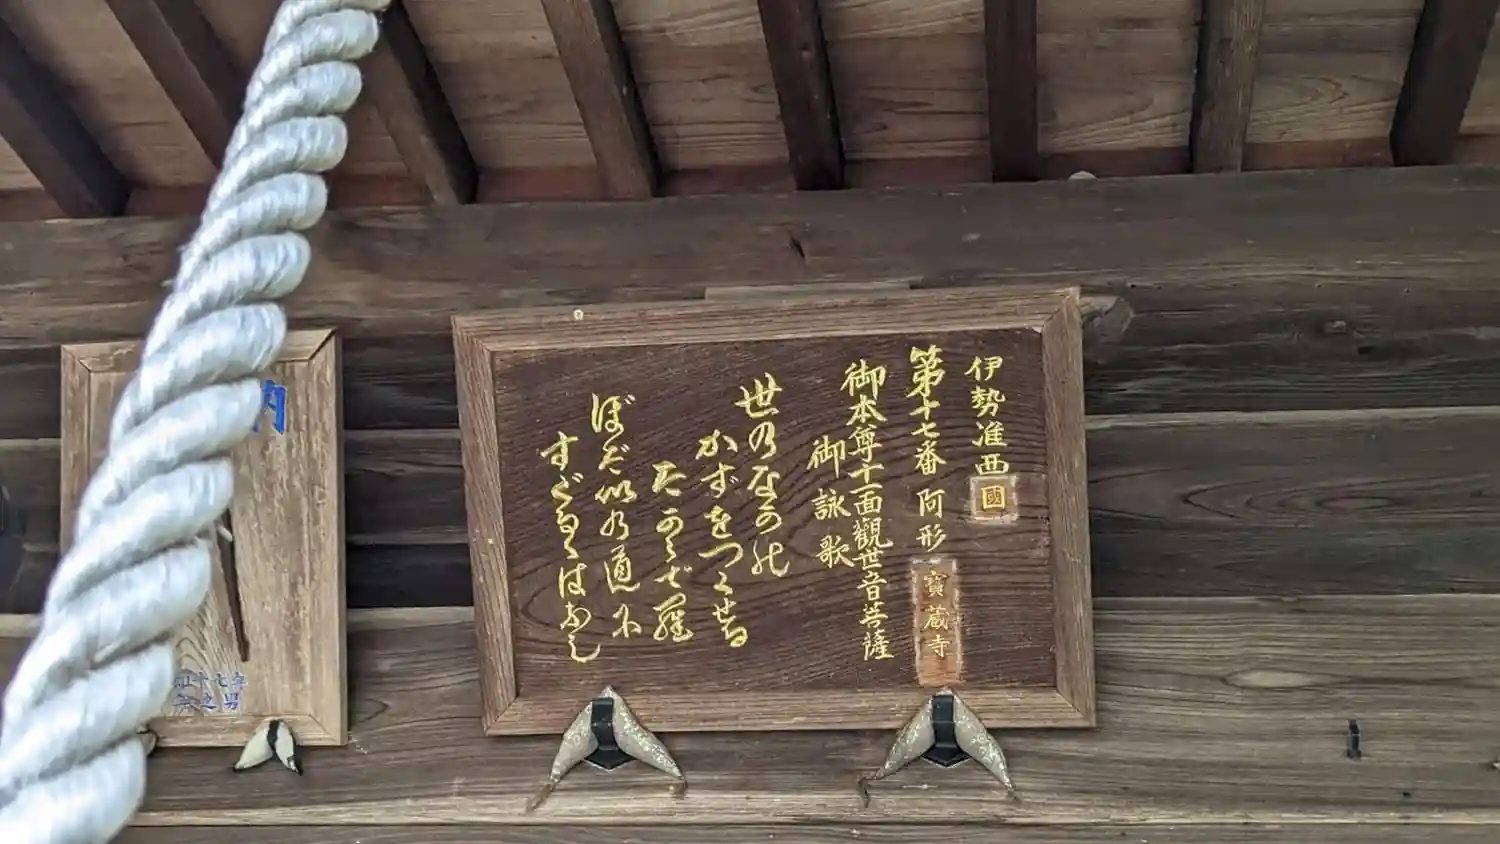 伊勢准西國
第十七番 阿形 寶蔵寺
御本尊十一面觀世音菩薩
御詠歌
世乃なかの
かずをつくせる
たからで羅
ぼだ以乃道尓
すぐるゝはなし
納
十七年
之男